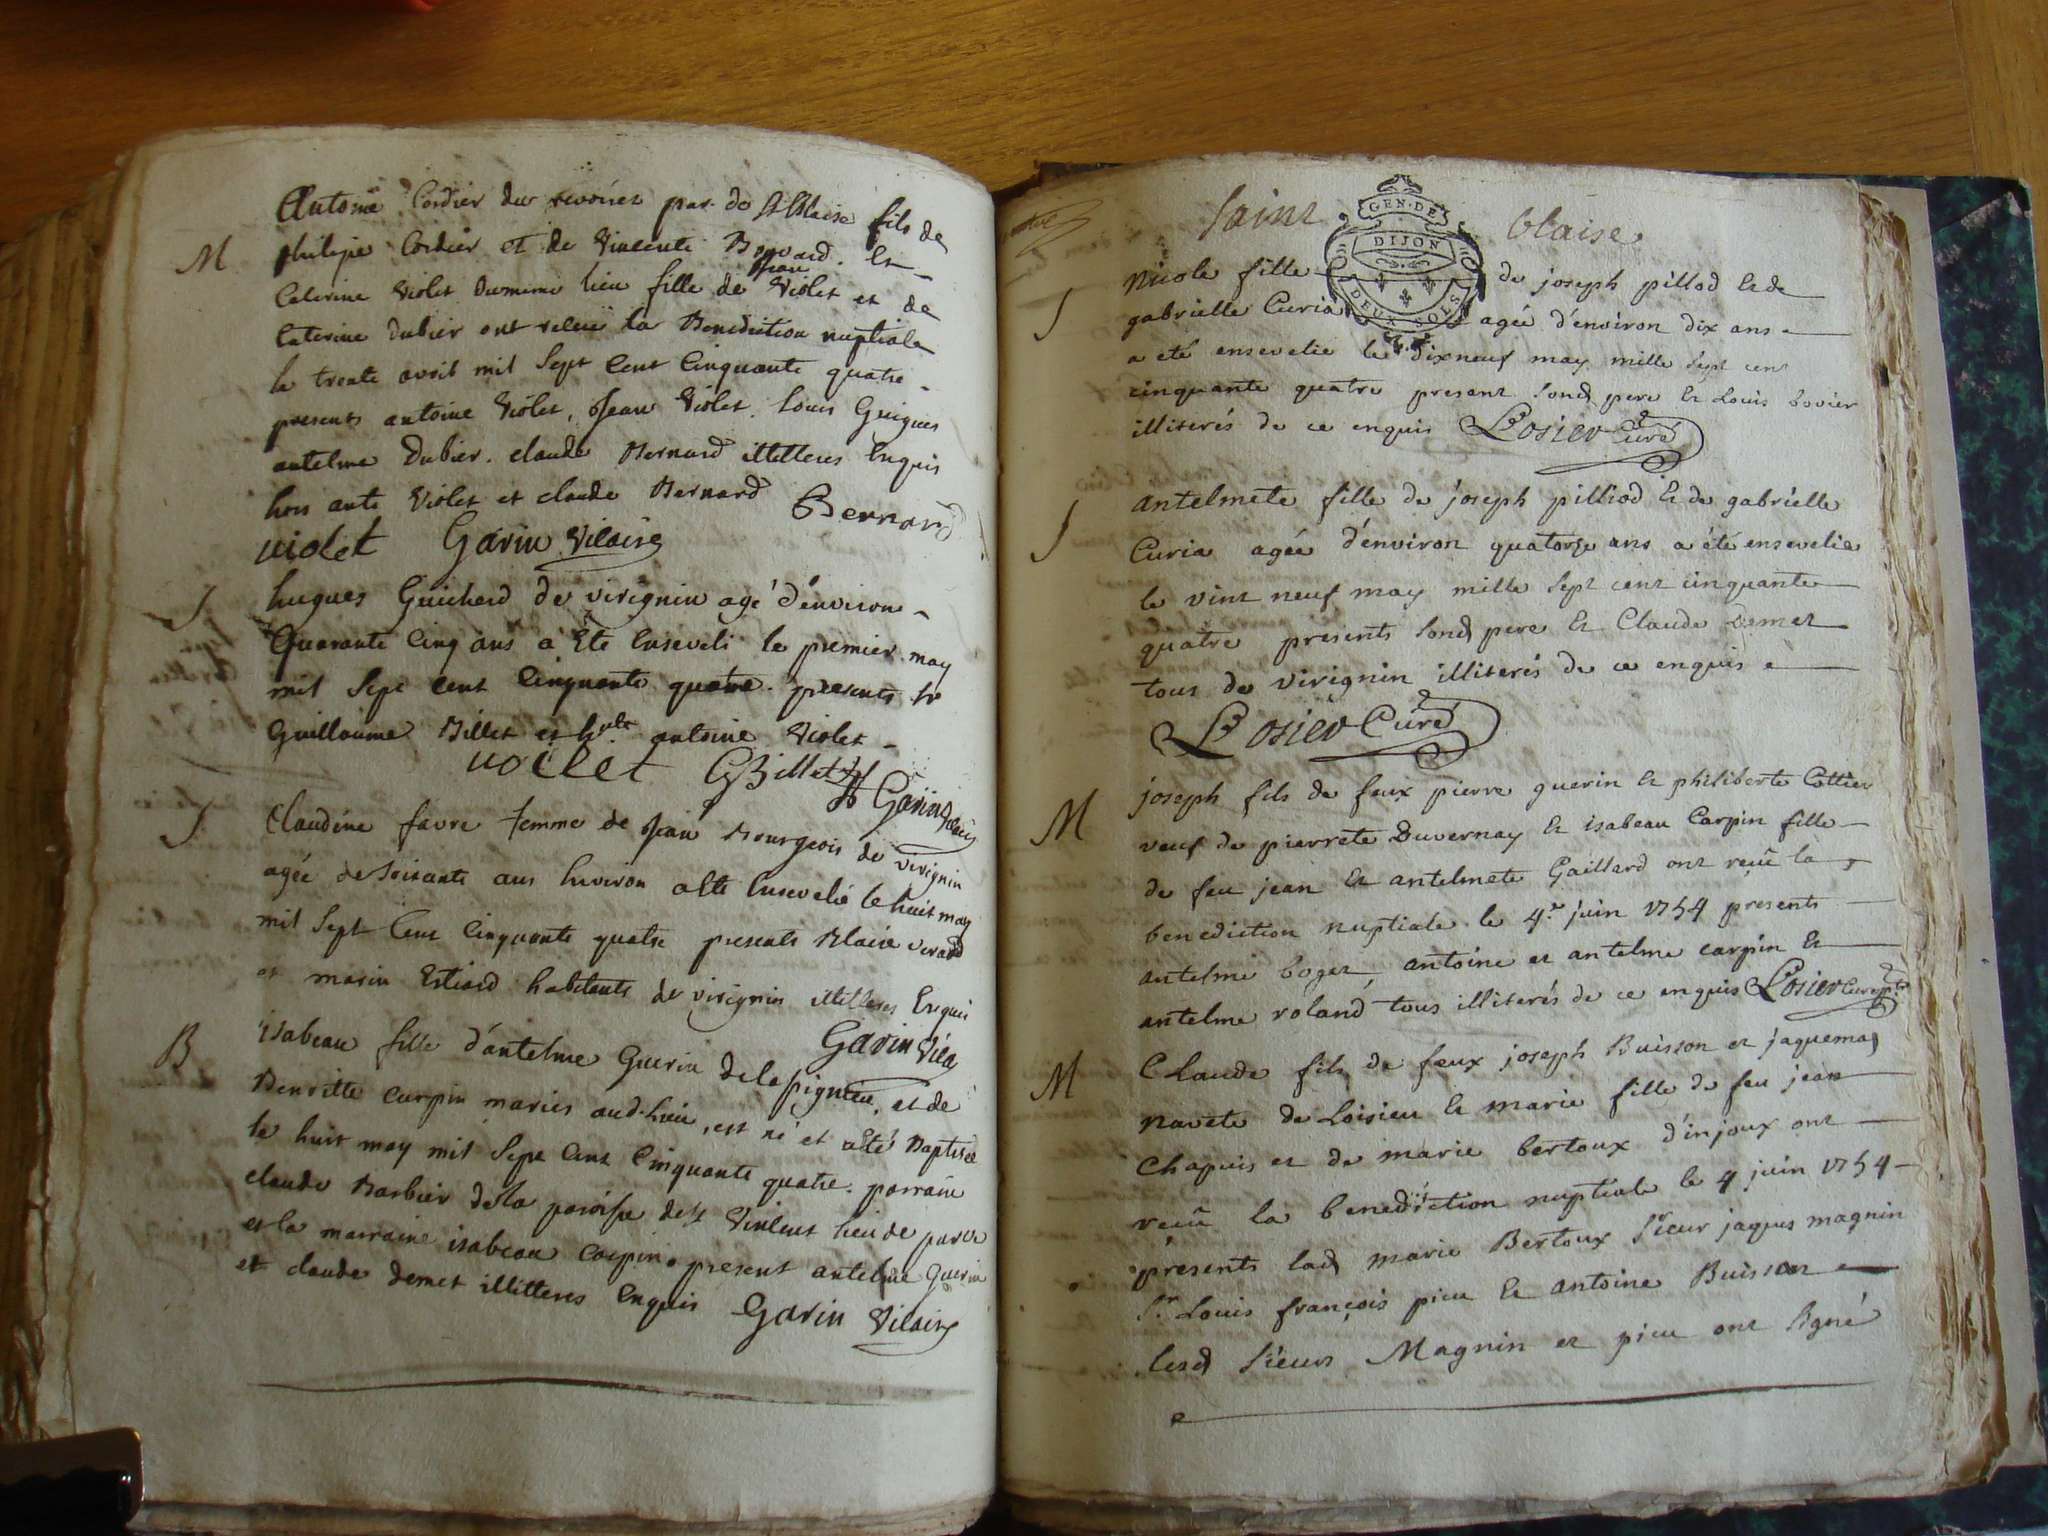 Antoine Cordier du revoirez par. de St Blaise fils de
M philipe Cordier et de Vincente Bovard. Et
Caterine Violet Dumeme lieu fille de jean Violet et de
Caterine dubier ont receu la Benediction nuptiale
le trente avril mil Sept Cent Cinquante quatre
presents antoine Violet, Jean Violet. Louis Guigues
antelme Dubier. claude Bernard illitteres Enquis
hors ante Violet et claude Bernard Bernard
violet Garin Vicaire
J hugues Guicherd de virignin agé d'environ
Quarante Cinq ans a Ete Enseveli le premier may
mil Sept cent Cinquante quatre. presents sr
Guillaume Billet et hble antoine Violet
violet GBillet Garin Vicaire
J Claudine favre femme de Jean Bourgeois de virignin
agée de Soixante ans Environ a Ete Ensevelie le huit may
mil Sept Cent Cinquante quatre presents Blaise verard
et marin habitants de virignin illitteres Enquis
Garin Vica
B isabeau fille d'antelme Guerin de la pignieu, et de
Benoitte Carpin maries aud. lieu, est né et a été Baptisée
le huit may mil Sept Cent Cinquante quatre. parrain
claude Barbier de la paroisse de St Vincent lieu de parve
et la marraine isabeau Carpin. present antelme Guerin
et claude demet illitteres Enquis Garin Vicaire
Saint blaise
GEN·DE
DIJON
DEUX SOLS
Nicole fille de joseph pillod & de
J gabrielle Curia agée d'environ dix ans
a eté ensevelie le dixneuf may mille sept cent
cinquante quatre present sond pere & Louis bovier
illiterés de ce enquis Losier Curé
antelmete fille de joseph pilliod & de gabrielle
J Curia agée d'environ quatorze ans a été ensevelie
le vint neuf may mille sept cent cinquante
quatre presents sond pere & Claude Demet
tous de virignin illiterés de ce enquis
Losier Curé
joseph fils de feux pierre guerin & philiberte Cottier
M veuf de pierrete Duvernay & isabeau Carpin fille
de feu jean & antelmete Gaillard ont reçu la
benediction nuptiale le 4e juin 1754 presents
antelme boget, antoine et antelme carpin &
antelme roland tous illiterés de ce enquis Losier Curé
Claude fils de feux joseph Buisson et jaquema
M navete de Loisieu & marie fille de feu jean
Chapuis et de marie bertoux d'injoux ont
reçu la benediction nuptiale le 4 juin 1754
presents lad marie Bertoux Sieur jaques magnin
Sr Louis françois picu & antoine Buisson
lesd Sieurs Magnin et picu ont signé